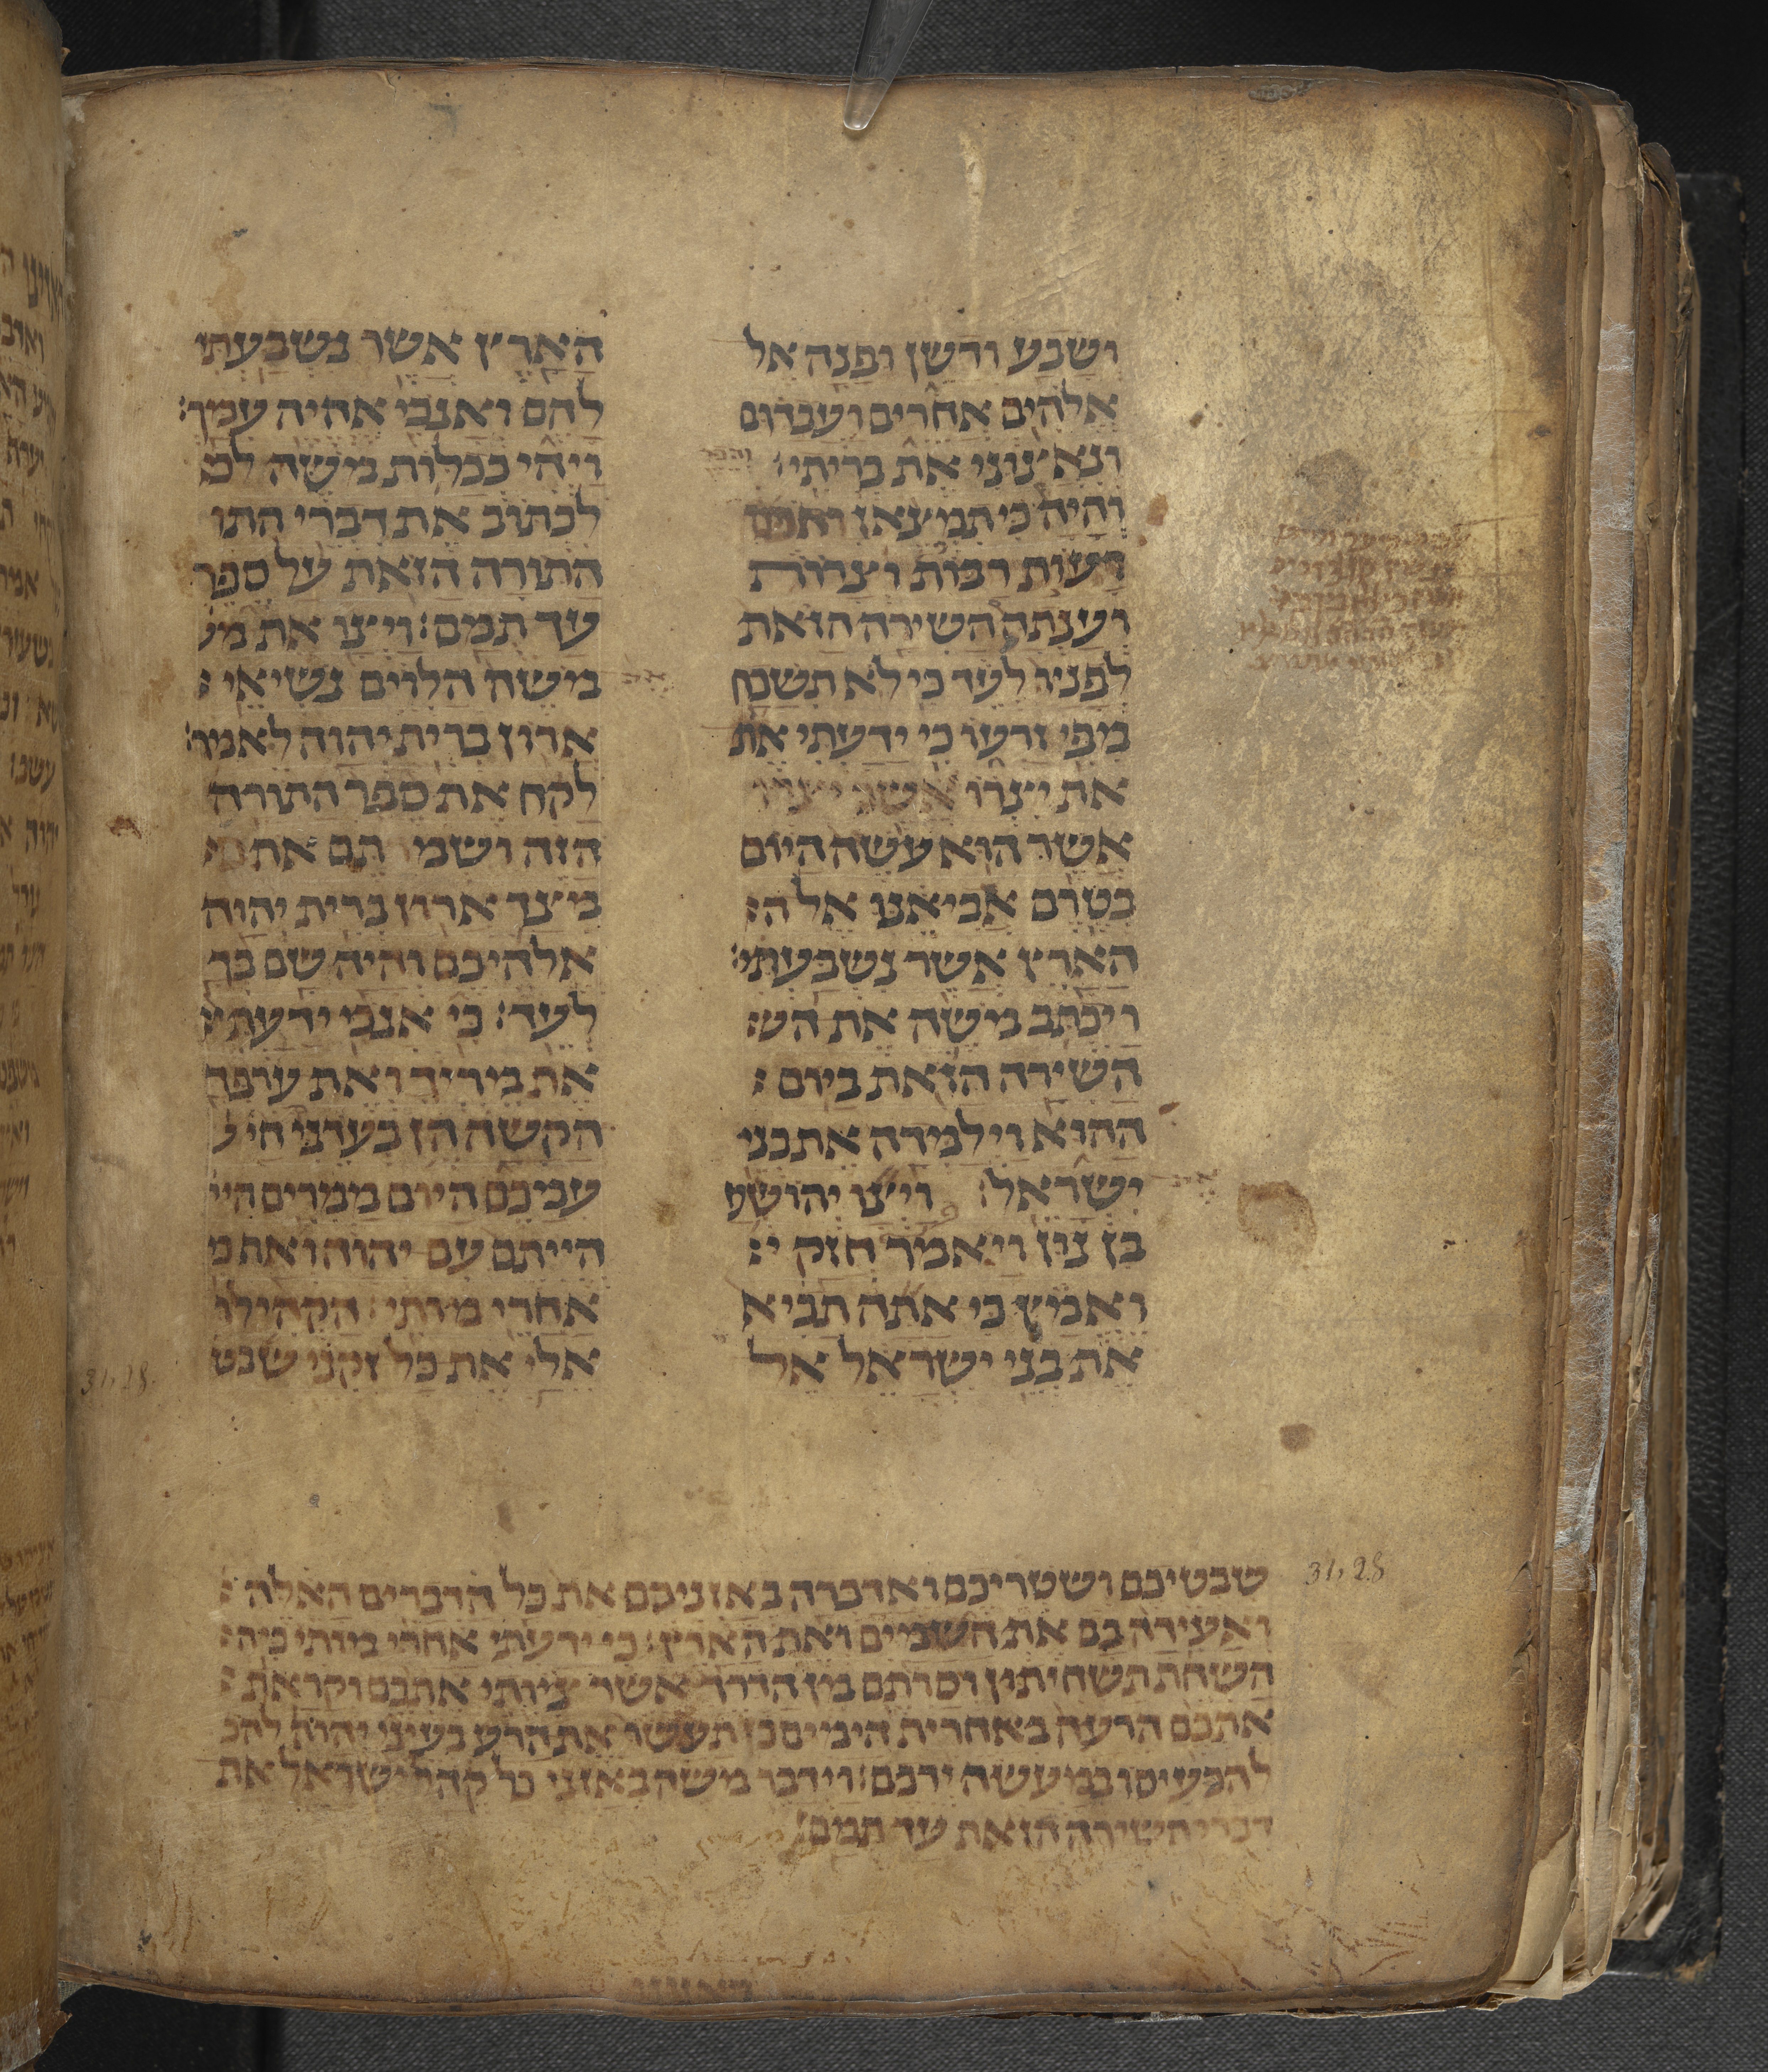 ושבע ודשן ופנה אל
אלהים אחרים ועבדום
ונאצוני את בריתי׃
והיה כי תמצאן אתם
רעות רבות וצרות
וענתה השירה הזאת
לפניו לעד כי לא תשכח
מפי זרעו כי ידעתי את
את יצרו
אשר הוא עשה היום
בטרם אביאנו אל ה׃
הארץ אשר נשבעתי׃
ויכתב משה את הש׃
השירה הזאת ביום׃
ההוא וילמדה את בני
ישראל׃ ויצו יהושע
בן נון ויאמר חזק י׃
ואמץ כי אתה תביא
את בני ישראל אל
הארץ אשר נשבעתי
להם ואנכי אהיה עמך׃
ויהי ככלות משה לכ
לכתוב את דברי התו
התורה הזאת על ספר
עד תמם׃ ויצו את מש
משה הלוים נשיאי׃
ארון ברית יהוה לאמר׃
לקח את ספר התורה
הזה ושמתם את
מצד ארון ברית יהוה
אלהיכם והיה שם בך
לעד׃ כי אנכי ידעתי׃
את מריך ואת ערפך
הקשה הן בעודני חי
עמכם היום ממרים הי
הייתם עם יהוה ואת כ
אחרי מותי׃ הקהילו
אלי את כל זקני שבט
31,28.
31,28
שבטיכם ושטריכם ואדברה באזניכם את כל הדברים האלה׃
ואעידה בם את השמים ואת הארץ׃ כי ידעתי אחרי מותי כי ה׃
השחת תשחיתון וסרתם מן הדרך אשר צויתי אתכם וקראת׃
אתכם הרעה באחרית הימים כי תעשו את הרע בעיני יהוה להכ
להכעיסו במעשה ידכם׃ וידבר משה באזני כל קהל ישראל את
דברי השירה הזאת עד תמם׃